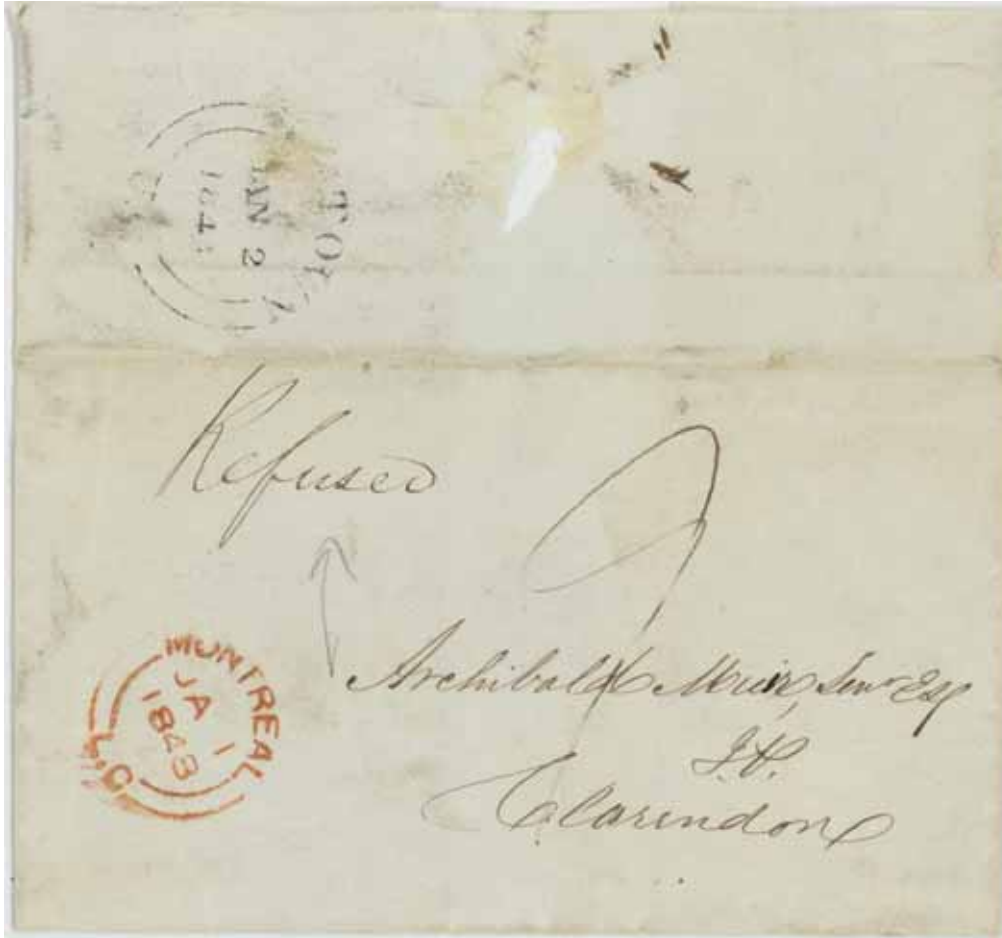 JAN 2
Refused
MONTREAL
JA 1
1843
L.C
Archibald Muir, Senr Esq
J.P.
Clarendon